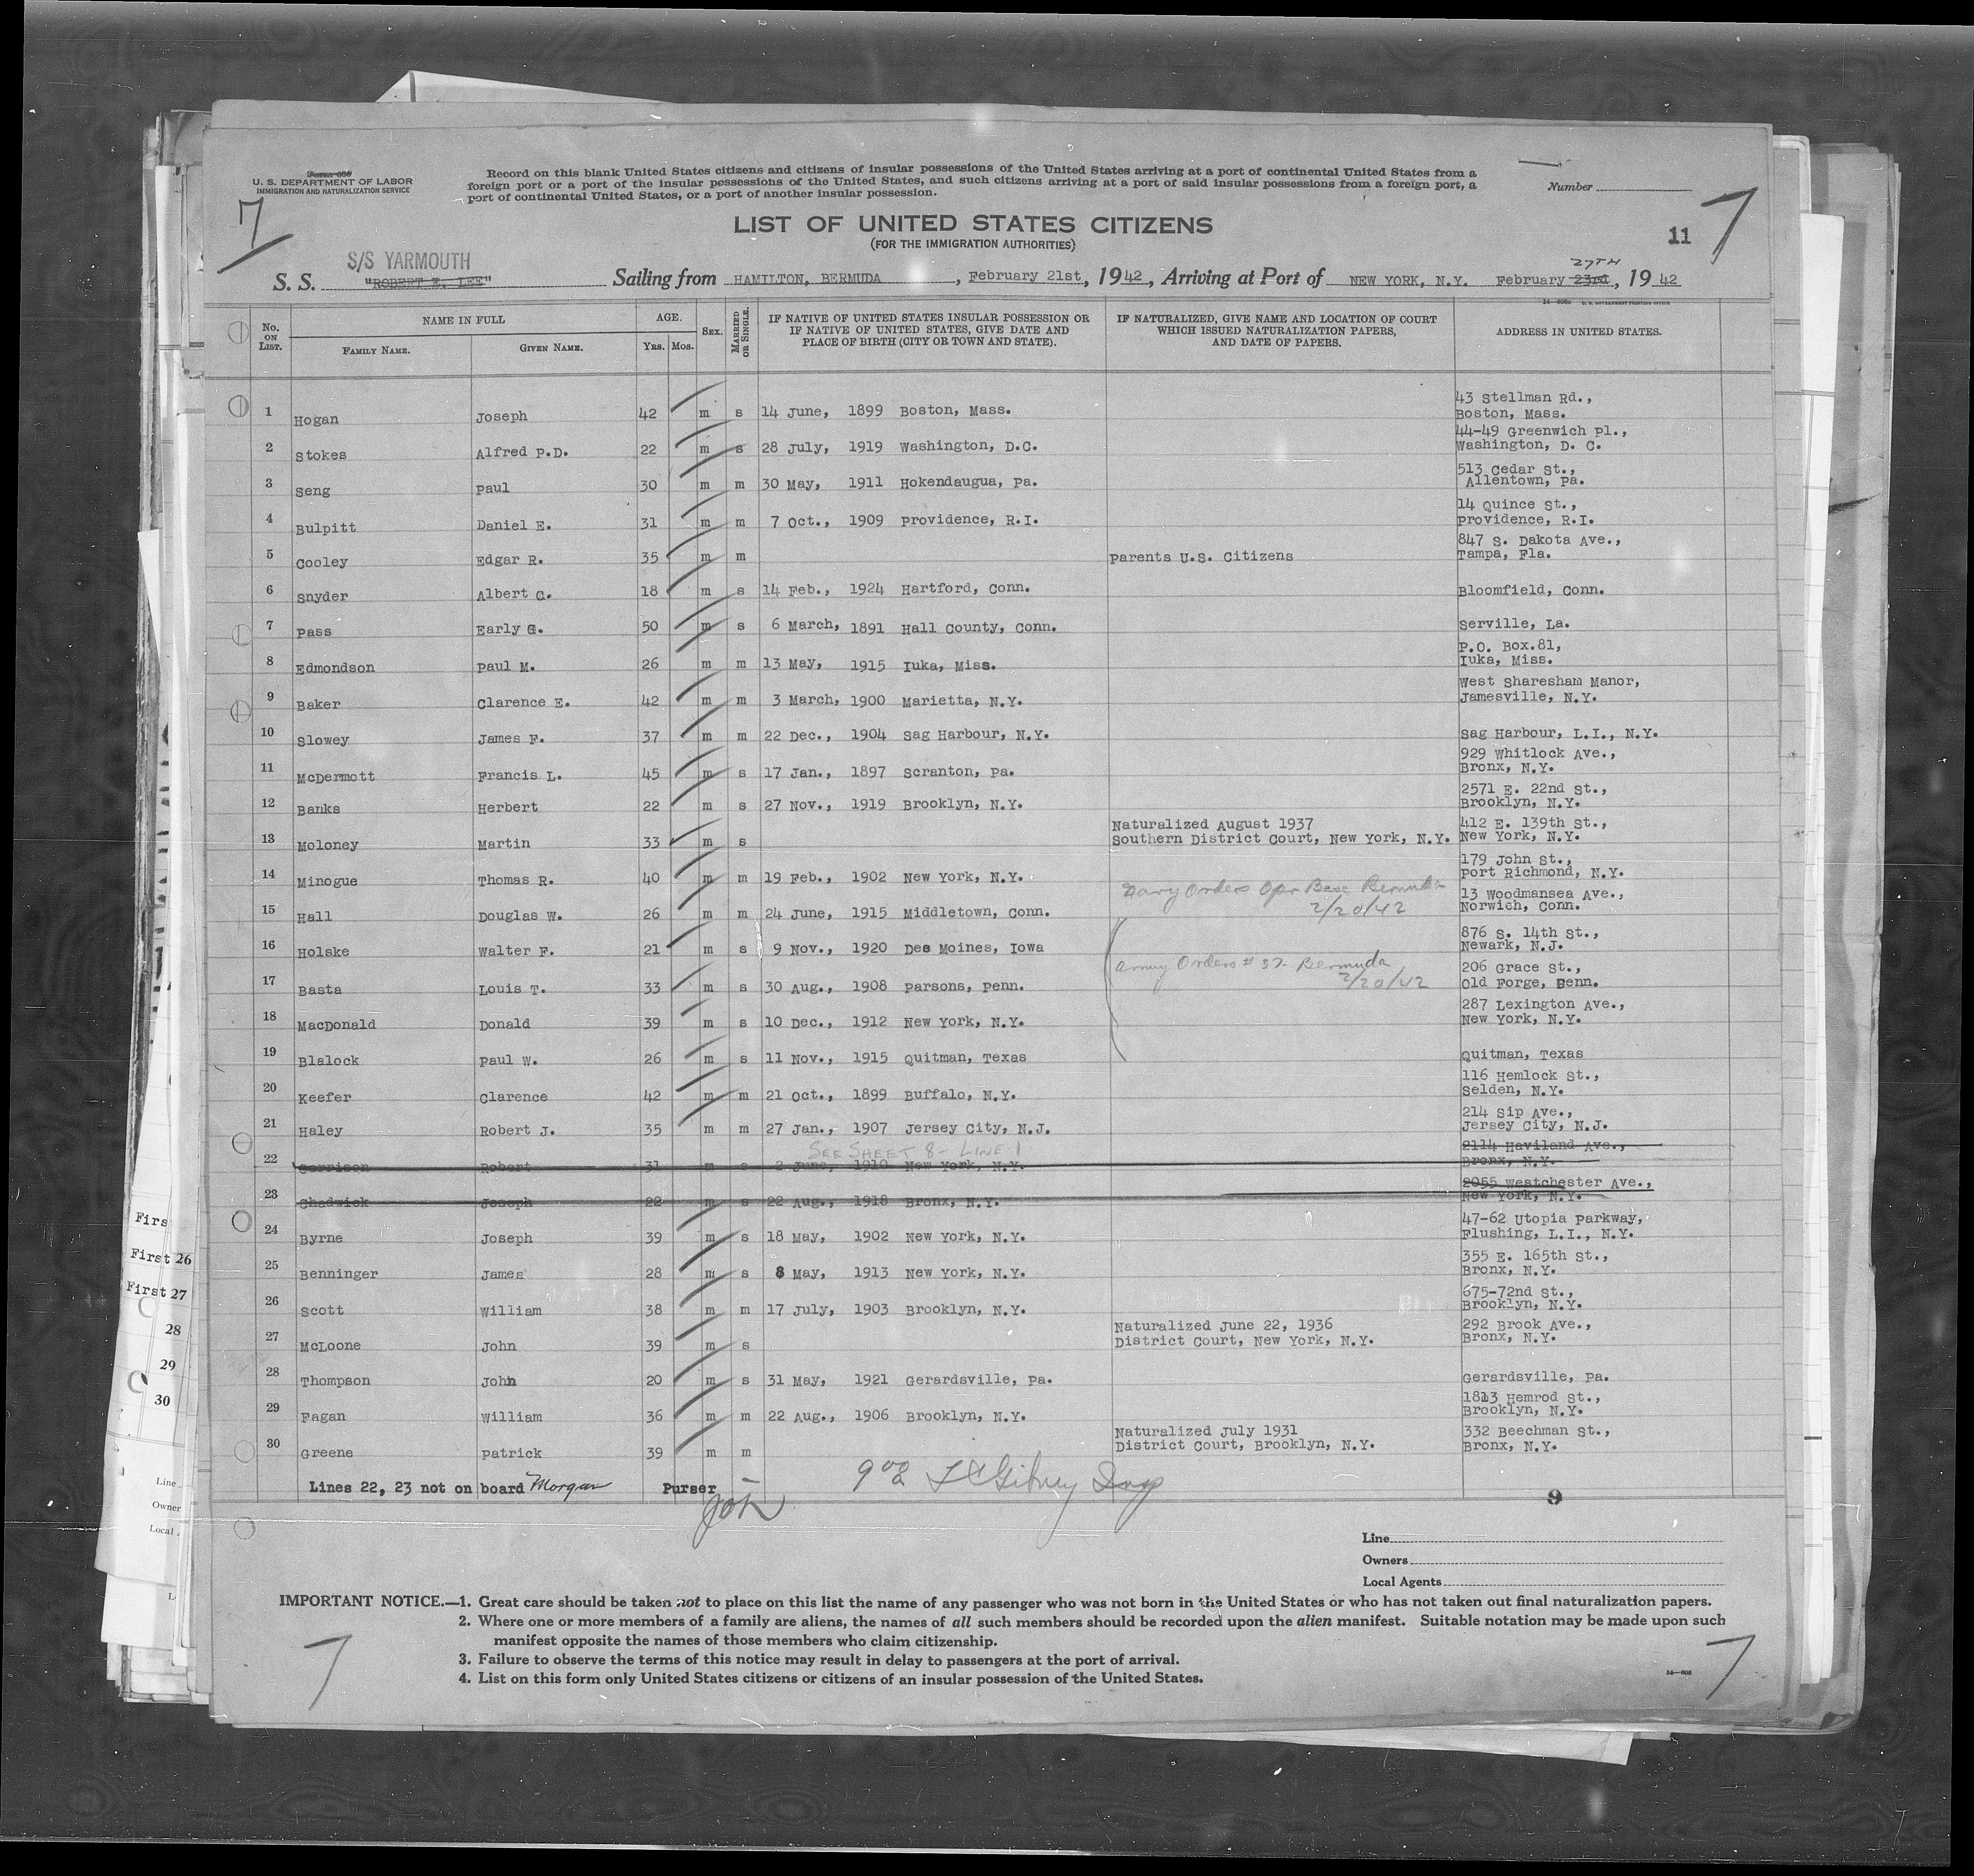 Form 630
U. S. DEPARTMENT OF LABOR
IMMIGRATION AND NATURALIZATION SERVICE
Record on this blank United States citizens and citizens of insular possessions of the United States arriving at a port of continental United States from a
foreign port or a port of the insular possessions of the United States, and such citizens arriving at a port of said insular possessions from a foreign port, a
port of continental United States, or a port of another insular possession.
Number
7
7
LIST OF UNITED STATES CITIZENS
(FOR THE IMMIGRATION AUTHORITIES)
11
S/S YARMOUTH
27TH
S. S. "ROBERT E. LEE" Sailing from HAMILTON, BERMUDA, February 21st, 1942, Arriving at Port of NEW YORK, N.Y. February 23rd, 1942
No. ON LIST. NAME IN FULL FAMILY NAME. GIVEN NAME. AGE. YRS. MOS. SEX. MARRIED OR SINGLE. IF NATIVE OF UNITED STATES INSULAR POSSESSION OR IF NATIVE OF UNITED STATES, GIVE DATE AND PLACE OF BIRTH (CITY OR TOWN AND STATE). IF NATURALIZED, GIVE NAME AND LOCATION OF COURT WHICH ISSUED NATURALIZATION PAPERS, AND DATE OF PAPERS. ADDRESS IN UNITED STATES.
1 Hogan Joseph 42 m s 14 June, 1899 Boston, Mass. 43 Stellman Rd., Boston, Mass.
2 Stokes Alfred P.D. 22 m s 28 July, 1919 Washington, D.C. 44-49 Greenwich Pl., Washington, D. C.
3 Seng Paul 30 m m 30 May, 1911 Hokendaugua, Pa. 513 Cedar St., Allentown, Pa.
4 Bulpitt Daniel E. 31 m m 7 Oct., 1909 Providence, R.I. 14 Quince St., Providence, R.I.
5 Cooley Edgar R. 35 m m Parents U.S. Citizens 847 S. Dakota Ave., Tampa, Fla.
6 Snyder Albert C. 18 m s 14 Feb., 1924 Hartford, Conn. Bloomfield, Conn.
7 Pass Early G. 50 m s 6 March, 1891 Hall County, Conn. Serville, La.
8 Edmondson Paul M. 26 m m 13 May, 1915 Iuka, Miss. P.O. Box.81, Iuka, Miss.
9 Baker Clarence E. 42 m m 3 March, 1900 Marietta, N.Y. West Sharesham Manor, Jamesville, N.Y.
10 Slowey James F. 37 m m 22 Dec., 1904 Sag Harbour, N.Y. Sag Harbour, L.I., N.Y.
11 McDermott Francis L. 45 m s 17 Jan., 1897 Scranton, Pa. 929 Whitlock Ave., Bronx, N.Y.
12 Banks Herbert 22 m s 27 Nov., 1919 Brooklyn, N.Y. 2571 E. 22nd St., Brooklyn, N.Y.
13 Moloney Martin 33 m s Naturalized August 1937 Southern District Court, New York, N.Y. 412 E. 139th St., New York, N.Y.
14 Minogue Thomas R. 40 m m 19 Feb., 1902 New York, N.Y. 179 John St., Port Richmond, N.Y.
15 Hall Douglas W. 26 m m 24 June, 1915 Middletown, Conn. Navy Orders Opr Base Bermuda 2/20/42 13 Woodmansea Ave., Norwich, Conn.
16 Holske Walter F. 21 m s 9 Nov., 1920 Des Moines, Iowa 876 S. 14th St., Newark, N.J.
17 Basta Louis T. 33 m s 30 Aug., 1908 Parsons, Penn. Army Orders # 37- Bermuda 2/20/42 206 Grace St., Old Forge, Penn.
18 MacDonald Donald 39 m s 10 Dec., 1912 New York, N.Y. 287 Lexington Ave., New York, N.Y.
19 Blalock Paul W. 26 m s 11 Nov., 1915 Quitman, Texas Quitman, Texas
20 Keefer Clarence 42 m m 21 Oct., 1899 Buffalo, N.Y. 116 Hemlock St., Selden, N.Y.
21 Haley Robert J. 35 m m 27 Jan., 1907 Jersey City, N.J. 214 Sip Ave., Jersey City, N.J.
SEE SHEET 8 - LINE 1
22 Garrison Robert 31 m s 2 June, 1910 New York, N.Y. 2114 Haviland Ave., Bronx, N.Y.
23 Chadwick Joseph 22 m s 22 Aug., 1918 Bronx, N.Y. 2055 Westchester Ave., New York, N.Y.
24 Byrne Joseph 39 m s 18 May, 1902 New York, N.Y. 47-62 Utopia Parkway, Flushing, L.I., N.Y.
25 Benninger James 28 m s 8 May, 1913 New York, N.Y. 355 E. 165th St., Bronx, N.Y.
26 Scott William 38 m m 17 July, 1903 Brooklyn, N.Y. 675-72nd St., Brooklyn, N.Y.
27 McLoone John 39 m s Naturalized June 22, 1936 District Court, New York, N.Y. 292 Brook Ave., Bronx, N.Y.
28 Thompson John 20 m s 31 May, 1921 Gerardsville, Pa. Gerardsville, Pa.
29 Fagan William 36 m m 22 Aug., 1906 Brooklyn, N.Y. 1813 Hemrod St., Brooklyn, N.Y.
30 Greene Patrick 39 m m Naturalized July 1931 District Court, Brooklyn, N.Y. 332 Beechman St., Bronx, N.Y.
Lines 22, 23 not on board Morgan Purser
9
Line
Owners
Local Agents
IMPORTANT NOTICE.—1. Great care should be taken not to place on this list the name of any passenger who was not born in the United States or who has not taken out final naturalization papers.
2. Where one or more members of a family are aliens, the names of all such members should be recorded upon the alien manifest. Suitable notation may be made upon such
manifest opposite the names of those members who claim citizenship.
3. Failure to observe the terms of this notice may result in delay to passengers at the port of arrival.
4. List on this form only United States citizens or citizens of an insular possession of the United States.
7
7
First
First 26
First 27
28
29
30
Line
Owner
Local